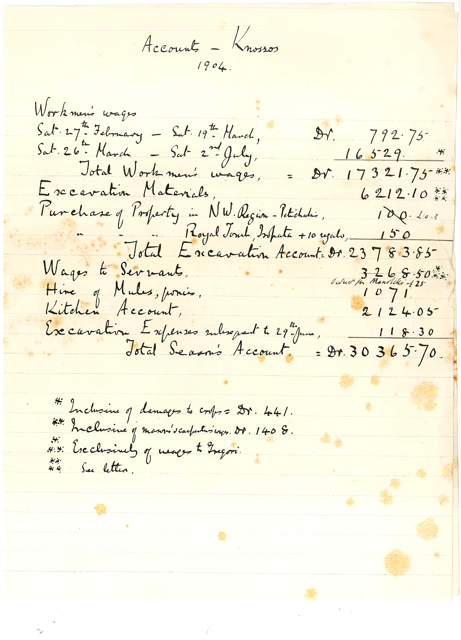 Accounts – Knossos
1904.
Workmen's wages
Sat. 27th February – Sat. 19th March, Dr. 792.75
Sat. 26th March – Sat. 2nd July, 16529. *
Total Workmen's wages, = Dr. 17321.75 **
Excavation Materials, 6212.10 **
Purchase of Property in N.W. Region – 100
" " " Royal Tomb, Isopata + 10 royals, 150
Total Excavation Account = Dr. 23783.85
Wages to Servants, 3268.50 **
Hire of Mules, ponies, 1071
Kitchen Account, 2124.05
Excavation Expenses subsequent to 29th June, 118.30
Total Season's Account = Dr. 30365.70.
* Inclusive of damages to crops = Dr. 441.
** Inclusive of mason's & carpenter's wages Dr. 1408.
*** Exclusively of wages to Gregori.
**** See letter.